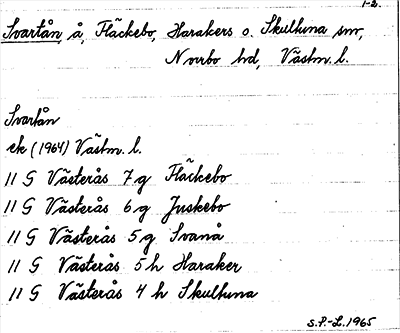 1-2.
Svartån, å, Fläckebo, Harakers o. Skultuna snr,
Norrbo hd, Västm. l.
Svartån
ek (1964) Västm. l.
11 G Västerås 7 g Fläckebo
11 G Västerås 6 g Juskebo
11 G Västerås 5 g Svanå
11 G Västerås 5 h Haraker
11 G Västerås 4 h Skultuna
S.P.-L. 1965